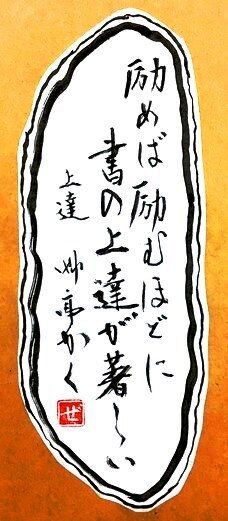 励めば励むほどに
書の上達が著しい
上達
かく
ぜ